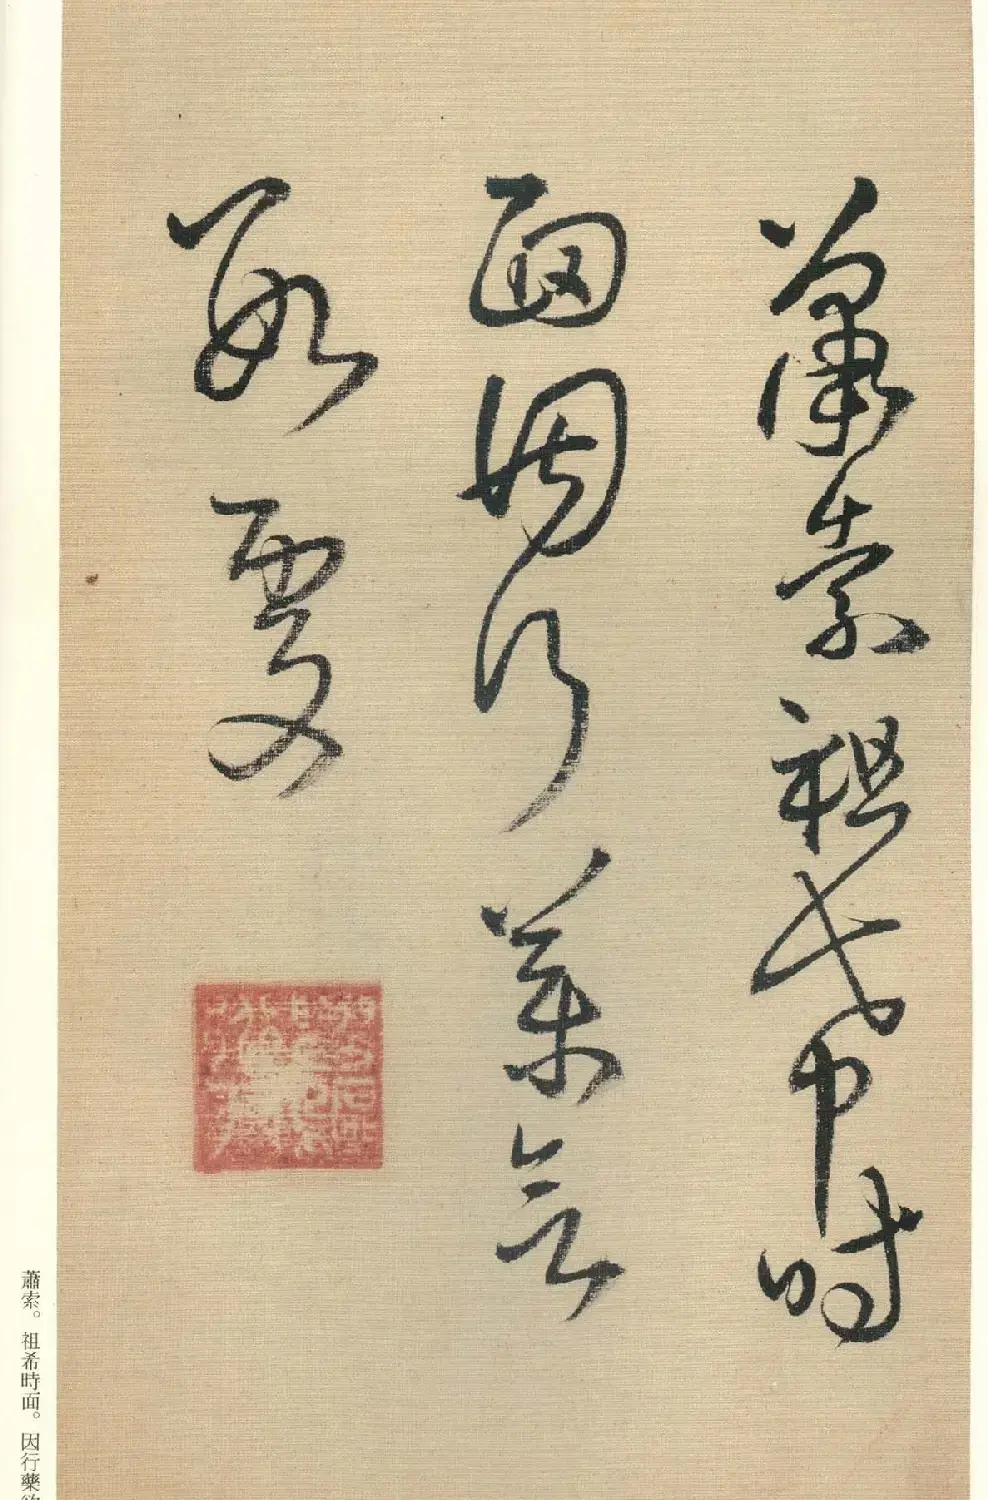 蕭索祖希時
面因行藥欲
數處
蕭索。祖希時面。因行藥